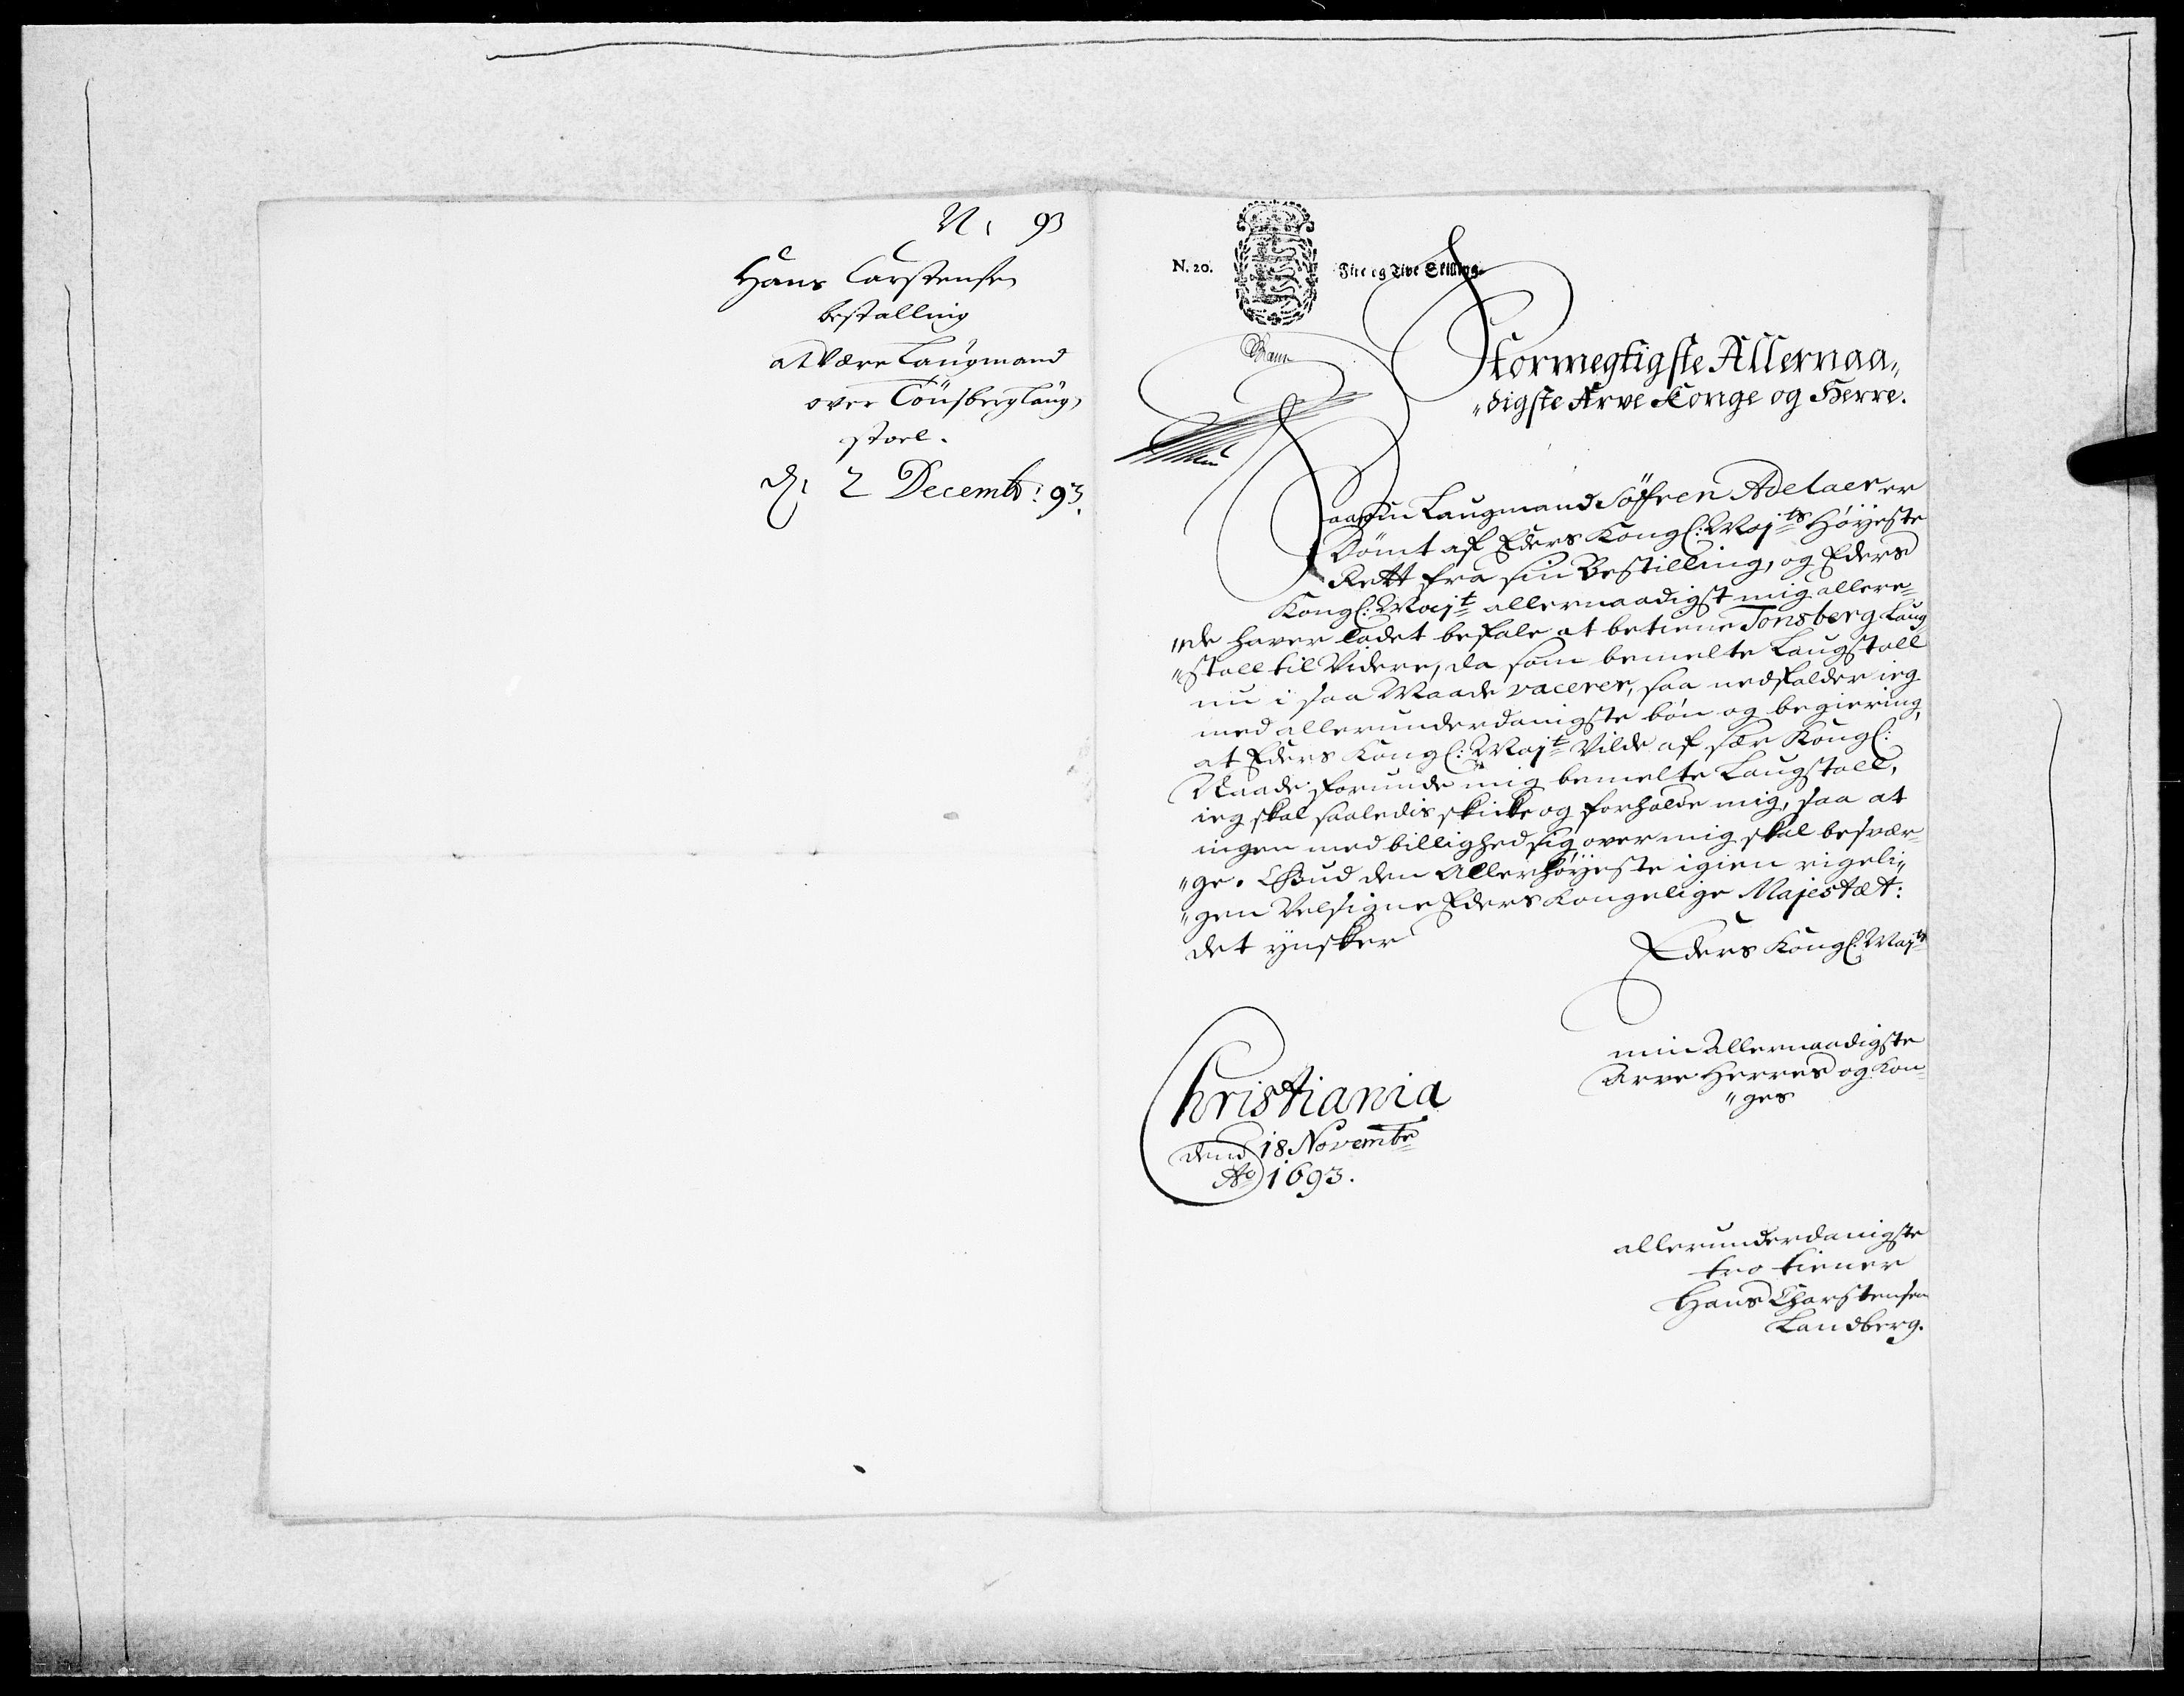 N: 93
Hans Carstensen
bestalling
at Være Laugmand
over Tönsberg Laug,
stoel.
D: 2 Decembr: 93.
N. 20.
Fire og Tive Skilling.
Stormegtigste Allernaa„
„digste Arve Konge og Herre.
Saasom Laugmand Söfren Adelaer er
Dömt af Eders Kongl: Majts Höyeste
Rett fra sin Bestilling, og Eders
Kongl: Majt allernaadigst mig allere„
„de haver ladet befale at betiene Tonsberg Laug
„stoll til Videre, da som bemelte Laugstoll
nu i saa Maade vacerer, saa nedfalder ieg
med allerunderdanigste bön og begiering,
at Eders Kongl: Majt Vilde af sær Kongl:
Naade forunde mig bemelte Laugstoll,
ieg skal saaledis skicke og forholde mig, saa at
ingen med billighed sig over mig skal besvær„
„ge. Gud den Allerhöyeste igien rigeli„
„gen Velsigne Eders Kongelige Majestæt:
det ynsker
Eders Kongl: Majts
min Allernaadigste
Arve Herres og Kon„
„ges
Christiania
dend 18 Novembr
Ao 1693.
allerunderdanigste
tro tiener
Hans Charstensen
Landberg.